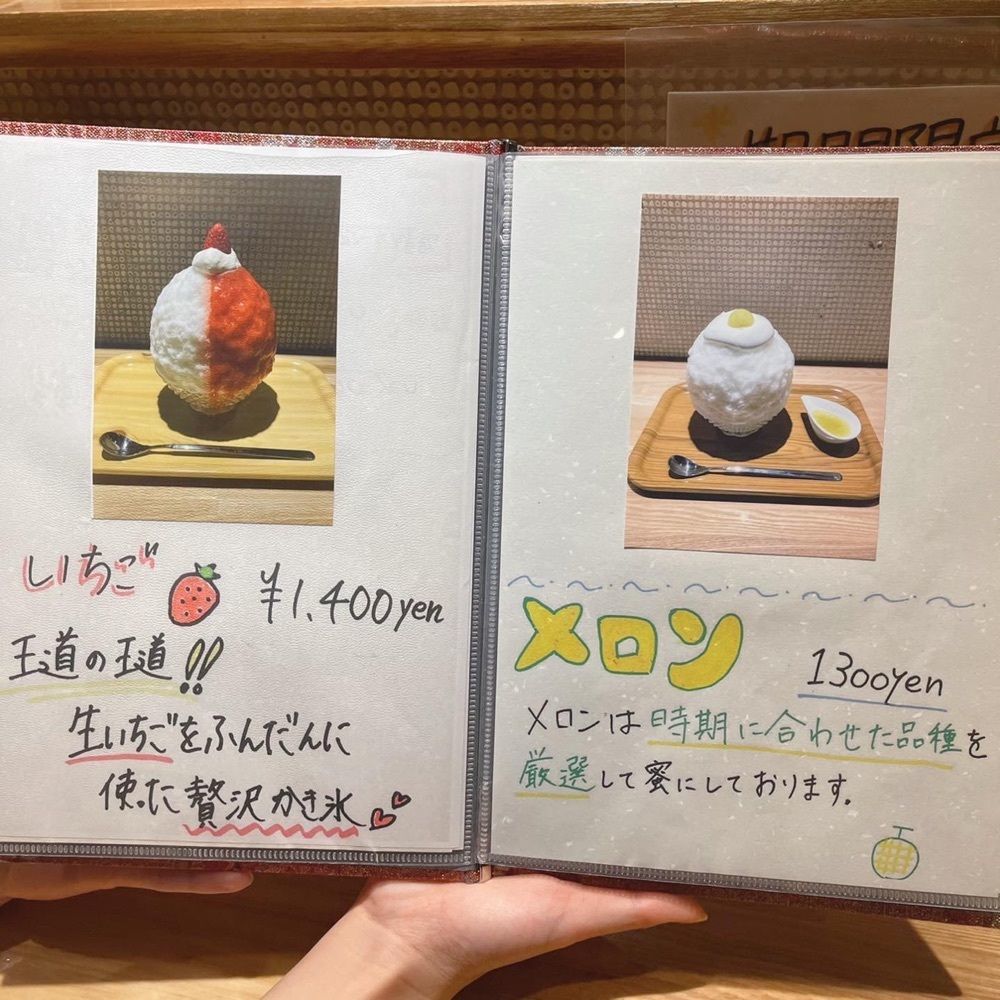 いちご
¥1,400yen
王道の王道!!
生いちごをふんだんに
使った贅沢かき氷
メロン
1300yen
メロンは時期に合わせた品種を
厳選して蜜にしております。